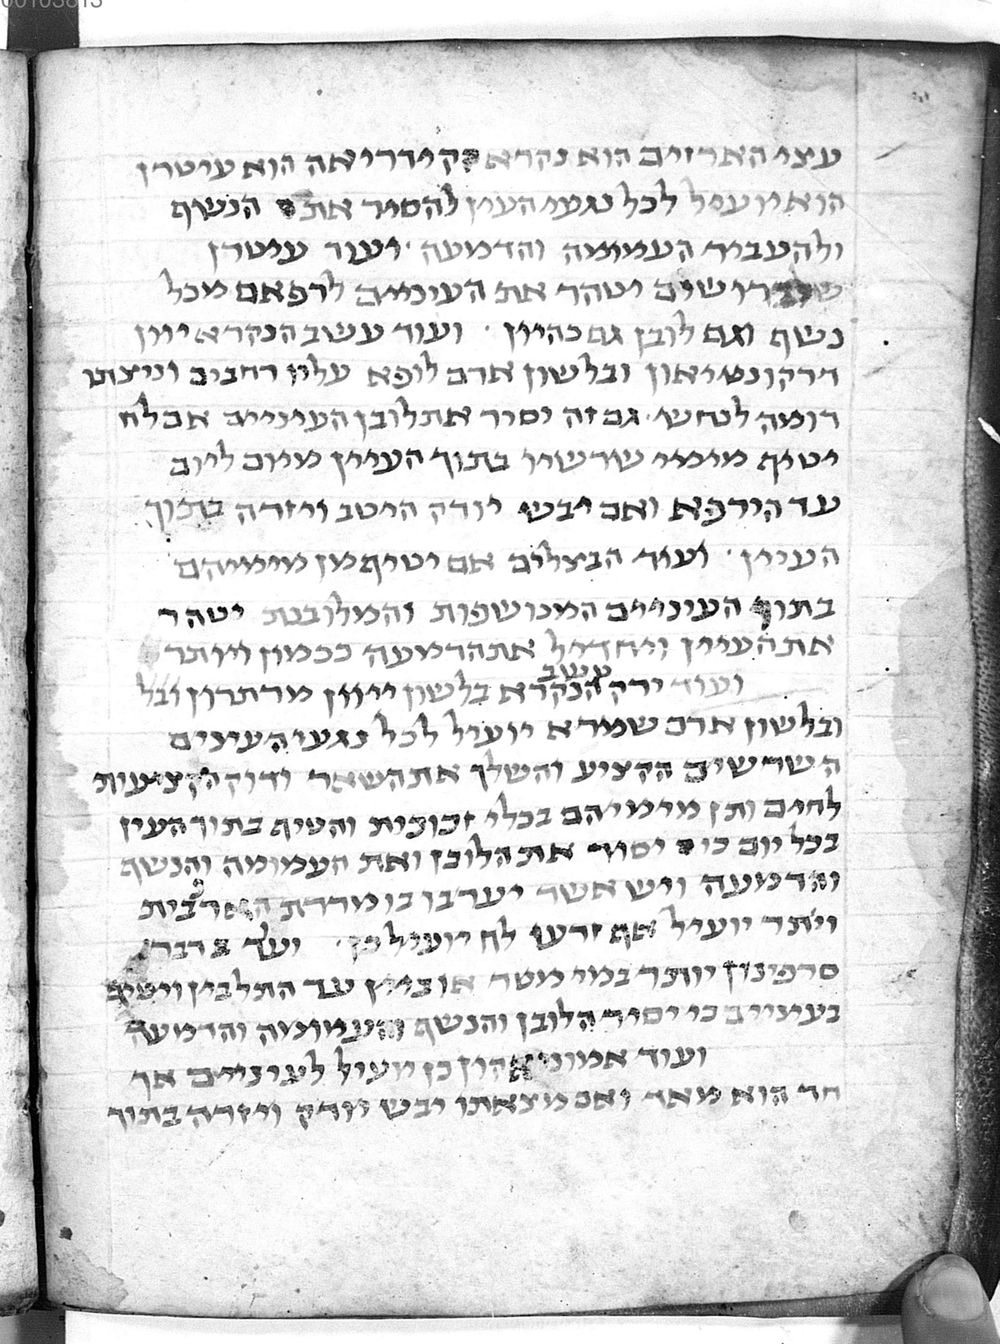 00103813
עצי הארזים הוא נקרא קידריאה הוא עיטרן
הוא יועיל לכל נגעי העין להסיר את הנשף
ולהעביר העמומה והדמעה · ועוד עיטרן
יטהר את העינים לרפאם מכל
נשף וגם לובן גם כהיון · ועוד עשב הנקרא יוון
דרקונטיאון ובלשון ארם לופא עליו רחבים וניצתו
דומה לנחש · גם זה יסיר את לובן העינים אם לח
יטיף מימי שרשיו בתוך העיין מיום ליום
עד הירפא ואם יבש יודק היטב ויזרה בתוך
העיין · ועוד הבצלים אם יטיף מן מימיהם
בתוך העיניים המנושפות והמלובנת יטהר
את העיין ויחדיל את הדמעה ככמון ויותר
ועוד ירק עשב הנקרא בלשון ייוון מרתרון ובל
ובלשון ארם שמרא יועיל לכל נגעי העינים
השרשים הקציע והשלך את השאר ודוק הקציעות
לחים ותן מימיהם בכלי זכוכית והטיף בתוך העין
בכל יום כי יסיר את הלובן ואת העמומה והנשף
והדמעה ויש אשר יערבו בו מררת הארבית
ויתר יועיל אף זרעו לח יועיל כן · ועוד ב דבר
סרפינון יותר במי מטר או ביין עד התלבין ויטיף
בעיניים כי יסיר הלובן והנשף והעמומה והדמעה
ועוד אמוניאהון כן יועיל לעינים אך
חד הוא מאד ואם מצאתו יבש יודק ויזרה בתוך